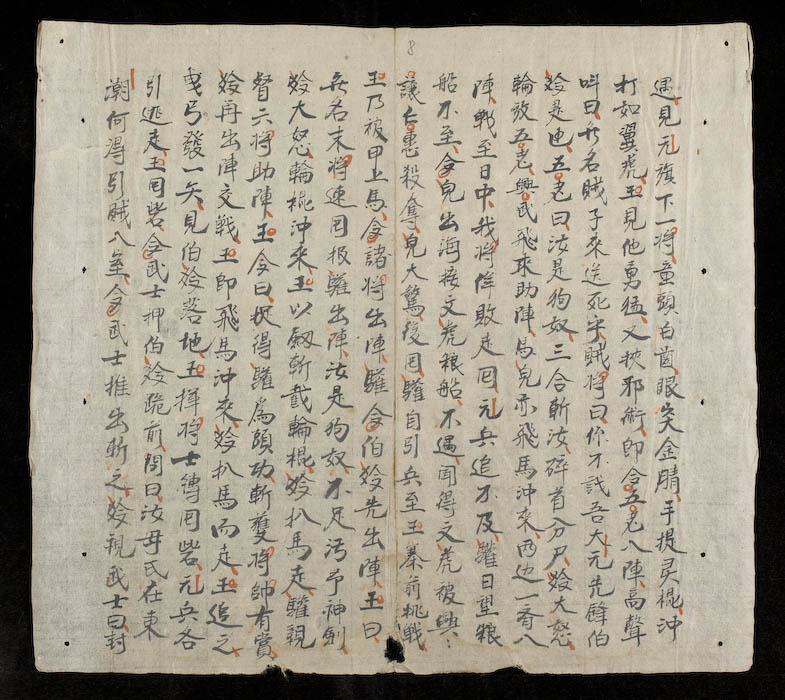 遇見元旗下一將童頭白齒眼突金睛手提灵棍沖
打如翼虎王見他勇猛又挾邪術即令五老入陣高聲
叫曰無名賊子來送死乎賊將曰你不識吾大元先鋒伯
姈是也五老曰汝是狗奴三合斬汝碎首分尸姈大怒
輪放五老興武飛來助陣馬皃亦飛馬沖來两边一齊入
陣戰至日中我將佯敗走囬元兵追不及驩日望粮
船不至令皃出海接文虎粮船不遇聞得文虎被興
讓仁惠殺奪皃大驚後囬驩自引兵至王寨前挑戰
王乃被甲上馬令諸將出陣驩令伯姈先出陣王曰
無名末將速囬报驩出陣汝是狗奴不足汚予神劍
姈大怒輪棍沖來王以劔斬截輪棍姈扒馬走驩親
督六將助陣王令曰捉得驩為頭功斬獲將帥有賞
姈再出陣交戰王即飛馬沖來姈扒馬而走王追之
曳弓發一矢見伯姈落地王揮將士縛囬砦元兵各
引逃走王囬砦令武士押伯姈跪前問曰汝母氏在東
潮何得引賊入寨令武士推出斬之姈視武士曰封